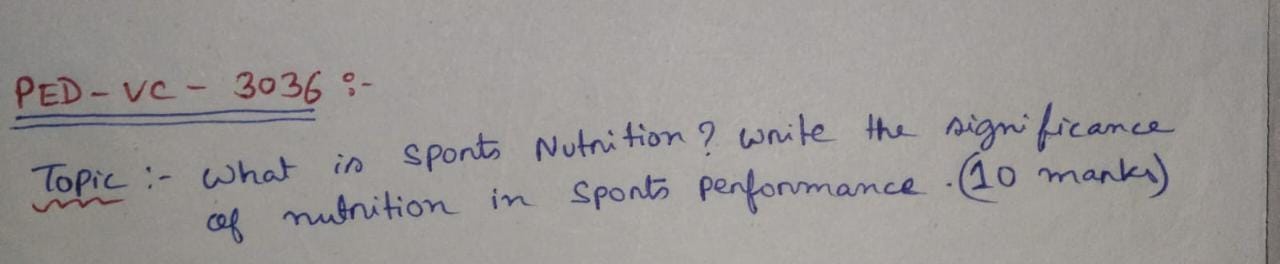 PED-VC-3036:-
Topic:- What is sports Nutrition? Write the significance
of nutrition in sports performance. (10 marks)